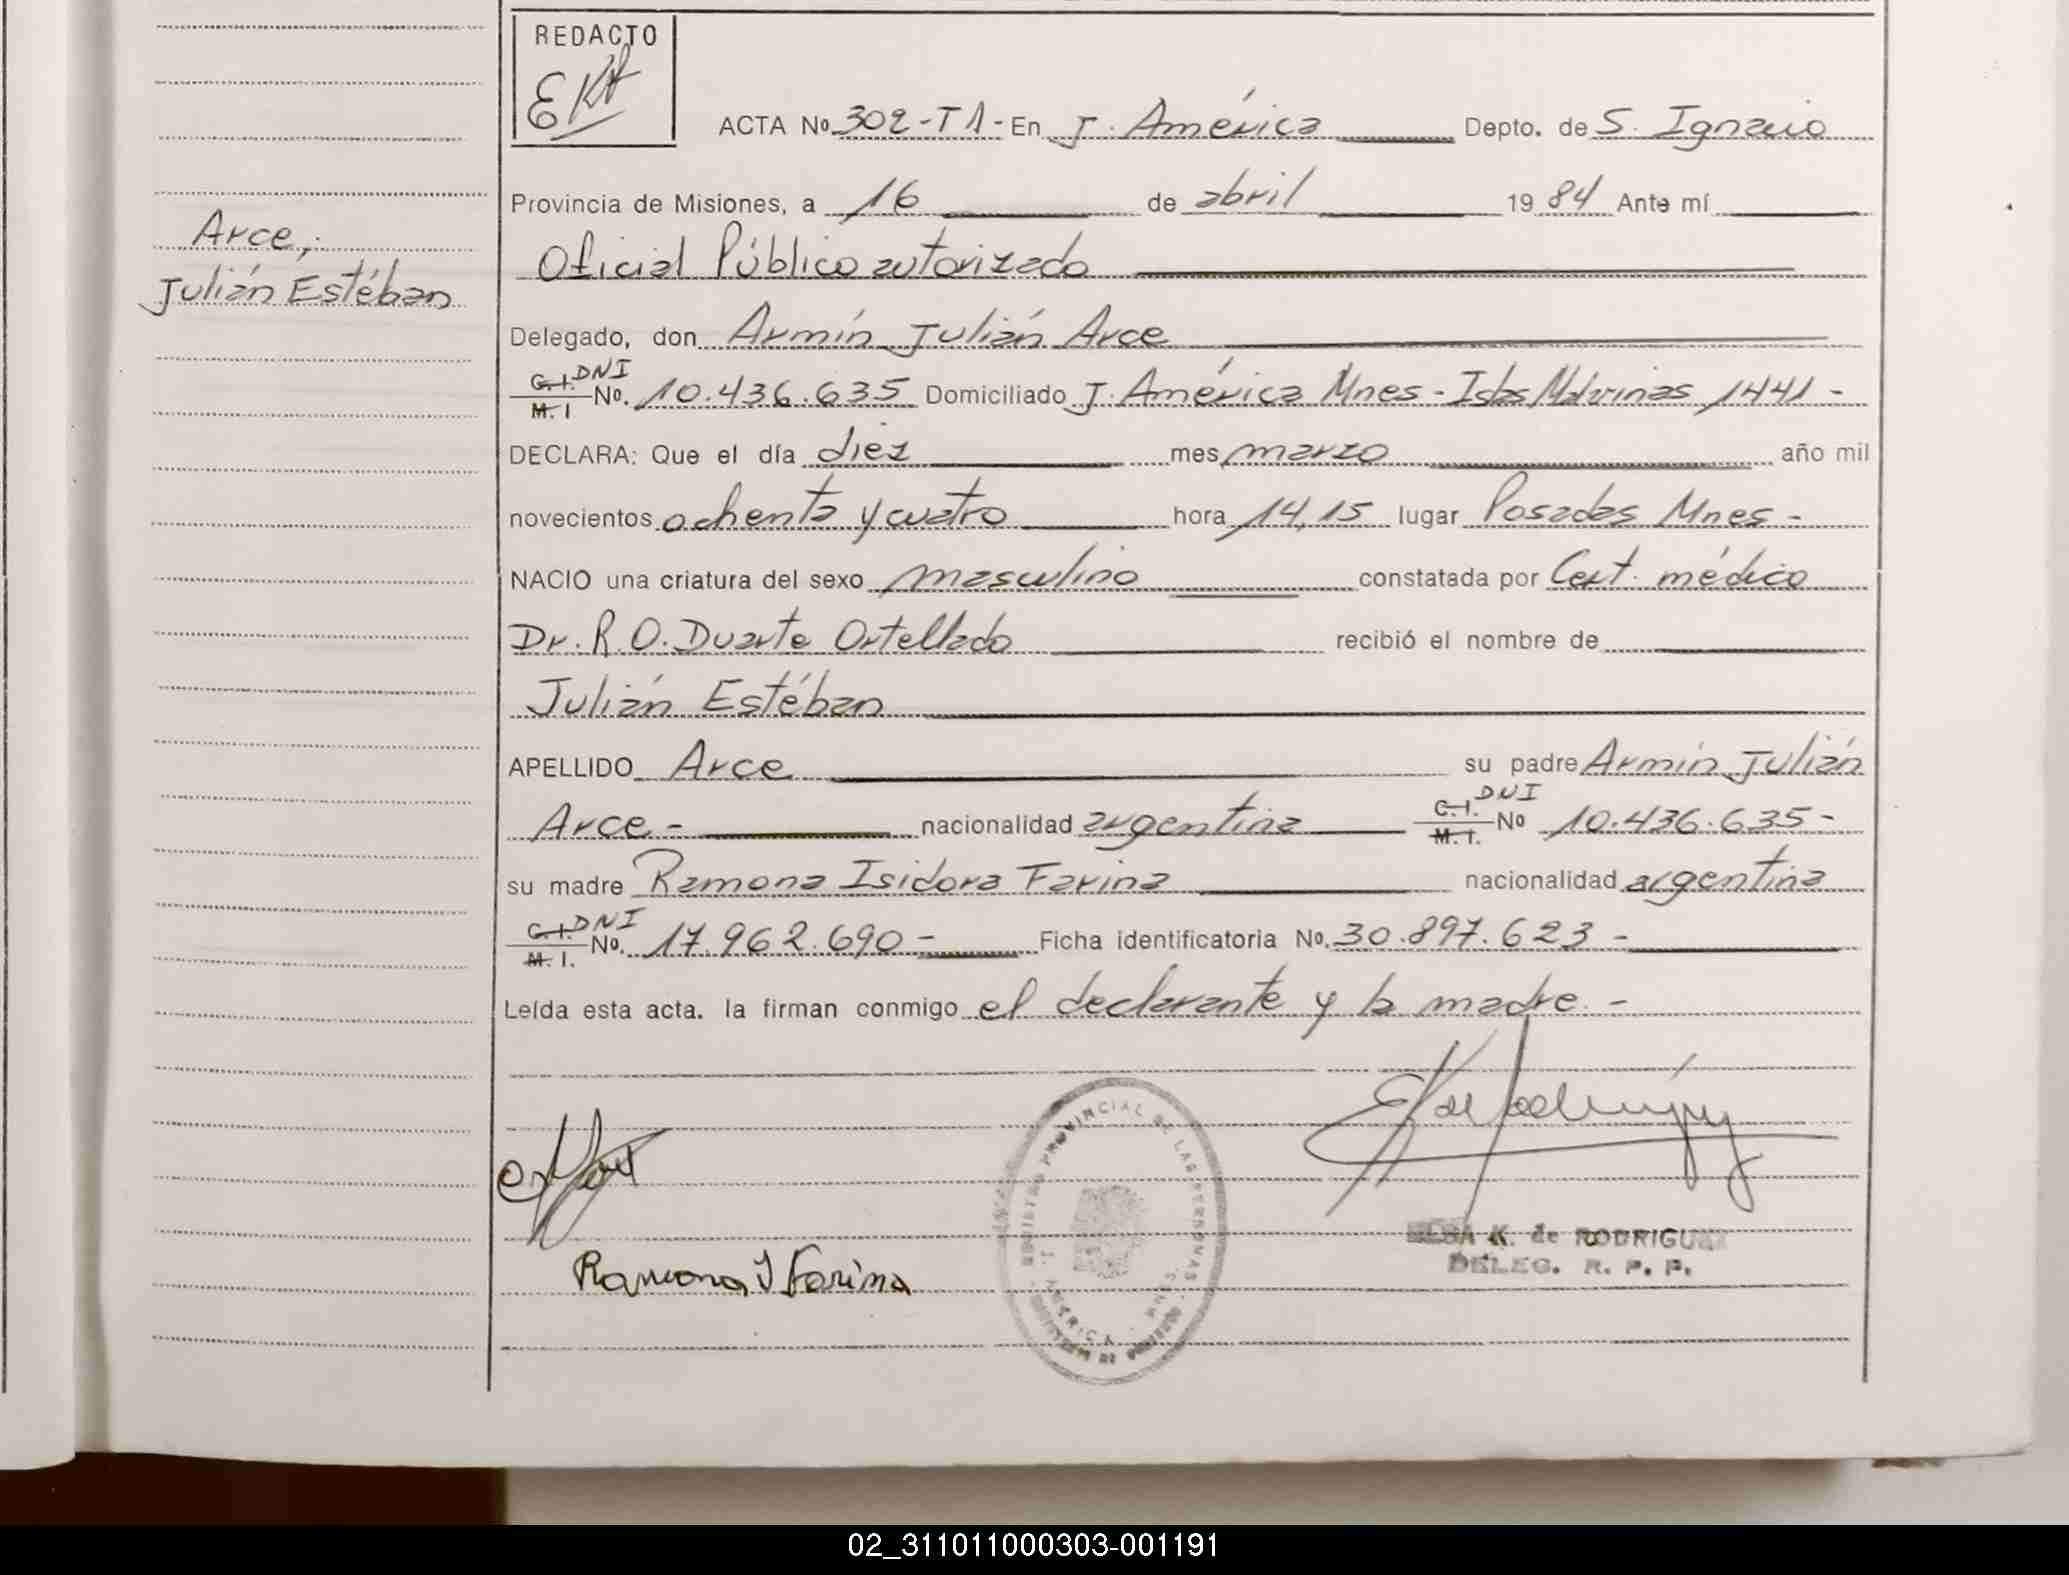 REDACTO
EKR
ACTA No. 302-T1- En J. América Depto. de S. Ignacio
Provincia de Misiones, a 16 de abril 1984 Ante mí
Arce,
Oficial Público autorizado
Julián Estéban
Delegado, don Armín Julián Arce
C.I. DNI
M.I No. 10.436.635 Domiciliado J. América Mnes - Islas Malvinas 1441 -
DECLARA: Que el día diez mes marzo año mil
novecientos ochenta y cuatro hora 14,15 lugar Posadas Mnes -
NACIO una criatura del sexo masculino constatada por Cert. médico
Dr. R. O. Duarte Ortellado recibió el nombre de
Julián Estéban
APELLIDO Arce su padre Armín Julián
Arce - nacionalidad argentina C.I. DNI M.I. No 10.436.635 -
su madre Ramona Isidora Farina nacionalidad argentina
C.I. DNI
M.I. No. 17.962.690 - Ficha identificatoria No. 30.897.623 -
Leída esta acta. la firman conmigo el declarante y la madre. -
REGISTRO PROVINCIAL DE LAS PERSONAS
J. AMERICA - MNES.
ELSA K. de RODRIGUEZ
DELEG. R. P. P.
Ramona I Farina
02_311011000303-001191